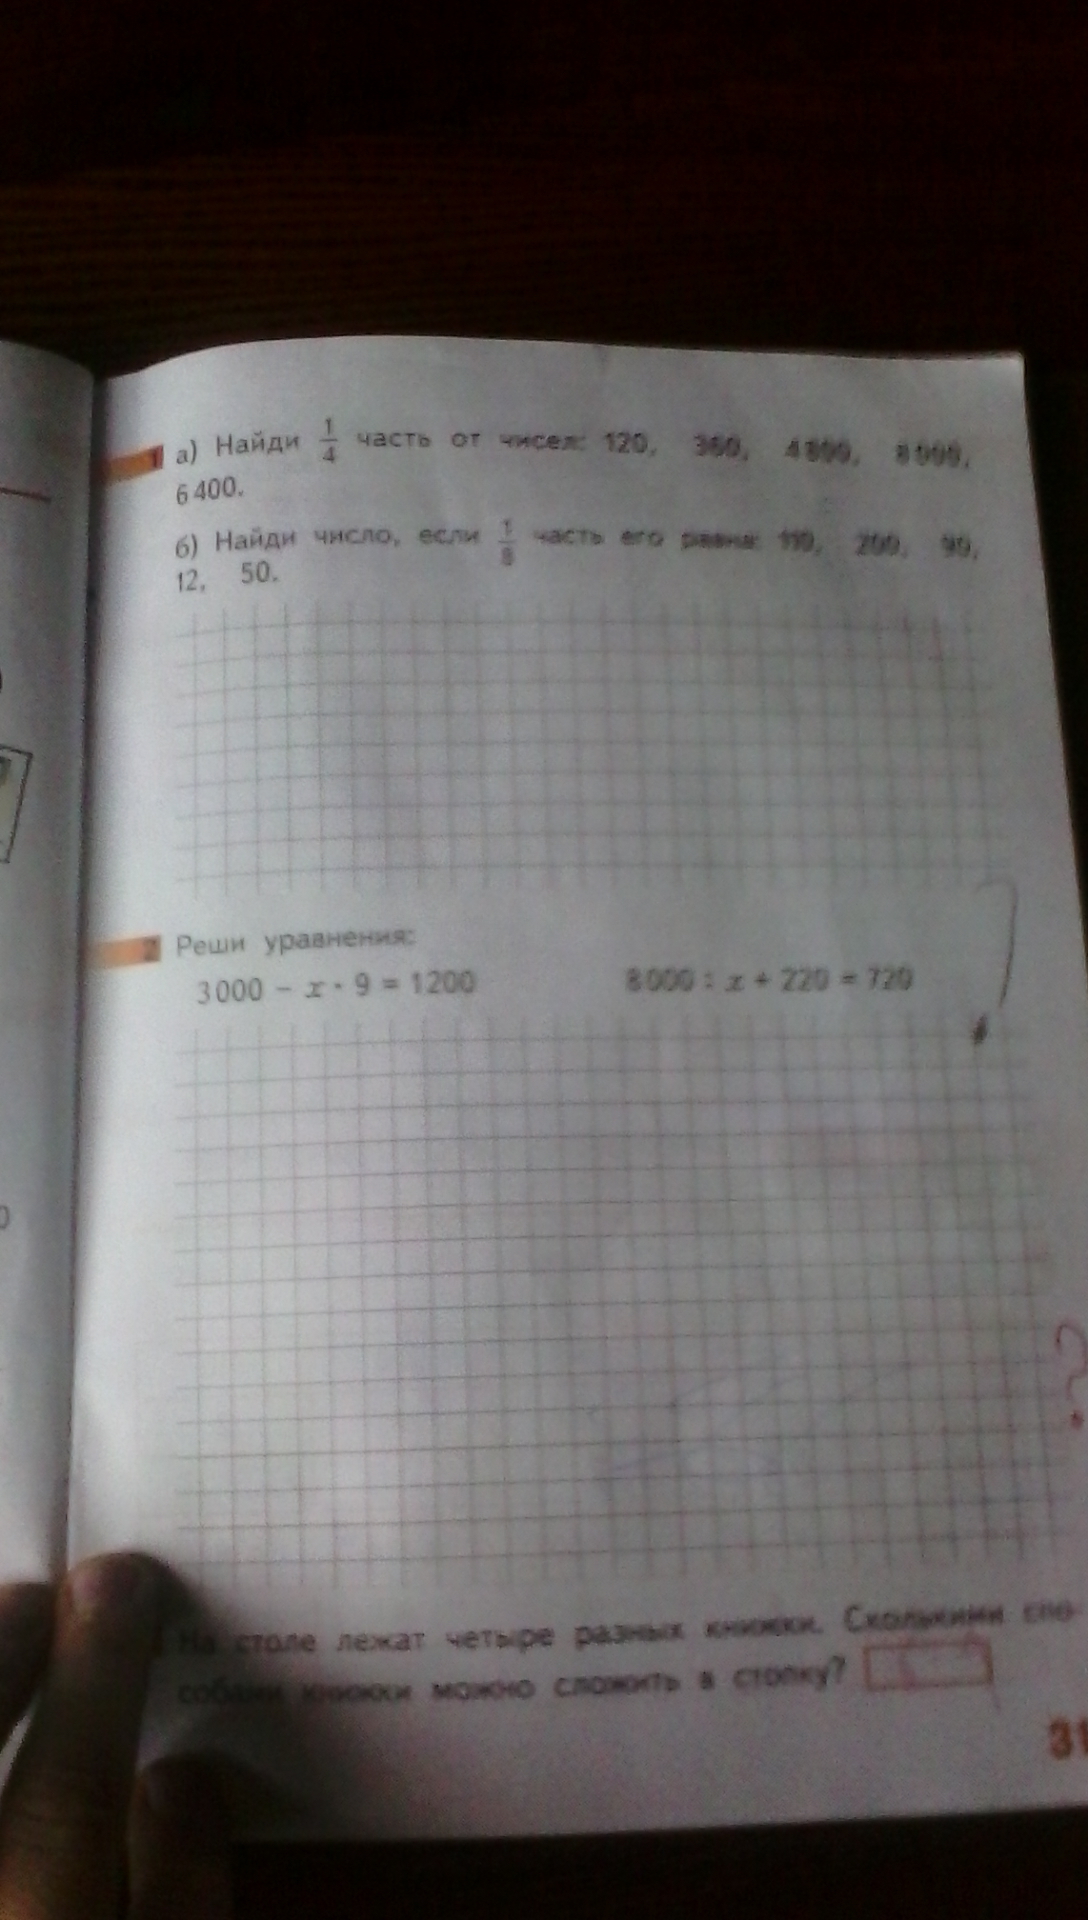 1 а) Найди 1/4 часть от чисел: 120, 360, 4 800, 8 000,
6 400.
б) Найди число, если 1/8 часть его равна: 110, 200, 90,
12, 50.
2 Реши уравнения:
3 000 − x · 9 = 1 200 8 000 : x + 220 = 720
?
На столе лежат четыре разных книжки. Сколькими спо-
собами книжки можно сложить в стопку?
31